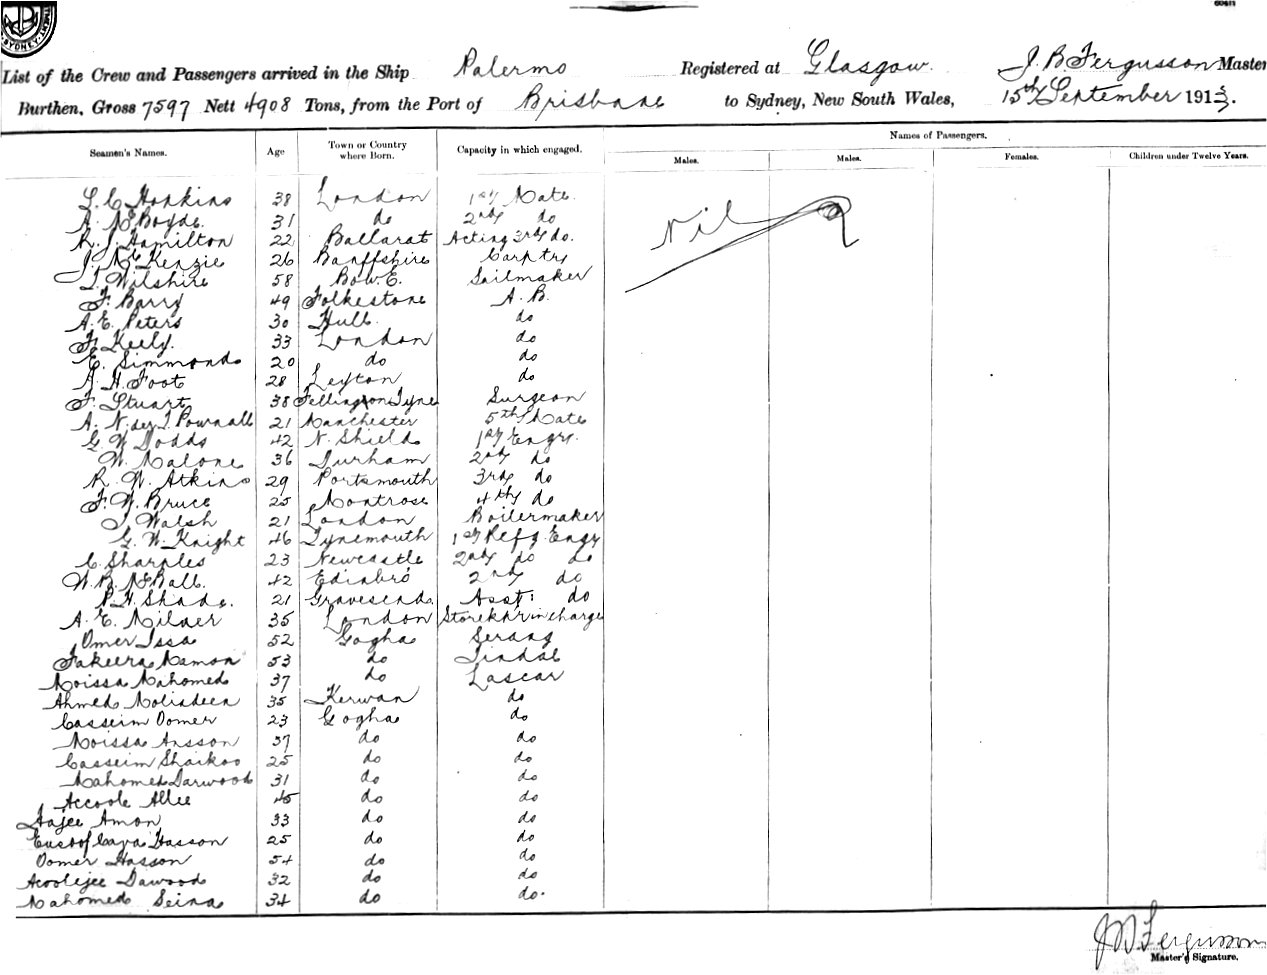 SYDNEY
List of the Crew and Passengers arrived in the Ship Palermo Registered at Glasgow. J. B. Fergusson Master
Burthen, Gross 7597 Nett 4908 Tons, from the Port of Brisbane to Sydney, New South Wales, 15th September 1913.
Seamen's Names. Age Town or Country where Born. Capacity in which engaged. Names of Passengers.
Males. Males. Females. Children under Twelve Years.
Nil
L. C. Hopkins 38 London 1st Mate.
A. McBoyde. 31 do 2nd do
R. J. Hamilton 22 Ballarat Acting 3rd do.
J. McKenzie 26 Banffshire Carptr
T. Wilshire 58 Bow. E. Sailmaker
F. Barry 49 Folkestone A. B.
A. E. Peters 30 Hull. do
F. Keely. 33 London do
E. Simmonds 20 do do
A. H. Foot 28 Leyton do
F. Stuart 38 Felling on Tyne Surgeon
A. N. Pownall 21 Manchester 5th Mate
G. W. Dodds 42 N. Shields 1st Engr.
W. Malone 36 Durham 2nd do
R. W. Atkins 29 Portsmouth 3rd do
F. W. Bruce 25 Montrose 4th do
J. Walsh 21 London Boilermaker
G. W. Knight 46 Tynemouth 1st Refg Engr
C. Sharples 23 Newcastle 2nd do do
W. B. McBall. 42 Edinbro 2nd do
P. H. Shade. 21 Gravesend. Asst: do
A. E. Milner 35 London Storekpr in charge
Omer Issa 52 Gogha Serang
Fakeera Mamon 53 do Tindal
Moissa Mahomed 37 do Lascar
Ahmed Molindeen 35 Kerwan do
Casseim Oomer 23 Gogha do
Moissa Ansson 37 do do
Casseim Shaikoo 25 do do
Mahomed Darwood 31 do do
Accoole Allee 45 do do
Hajee Amon 33 do do
Eusoof Caya Hasson 25 do do
Oomer Hasson 54 do do
Acoolejee Dawood 32 do do
Mahomed Seina 34 do do.
J. B. Fergusson
Master's Signature.